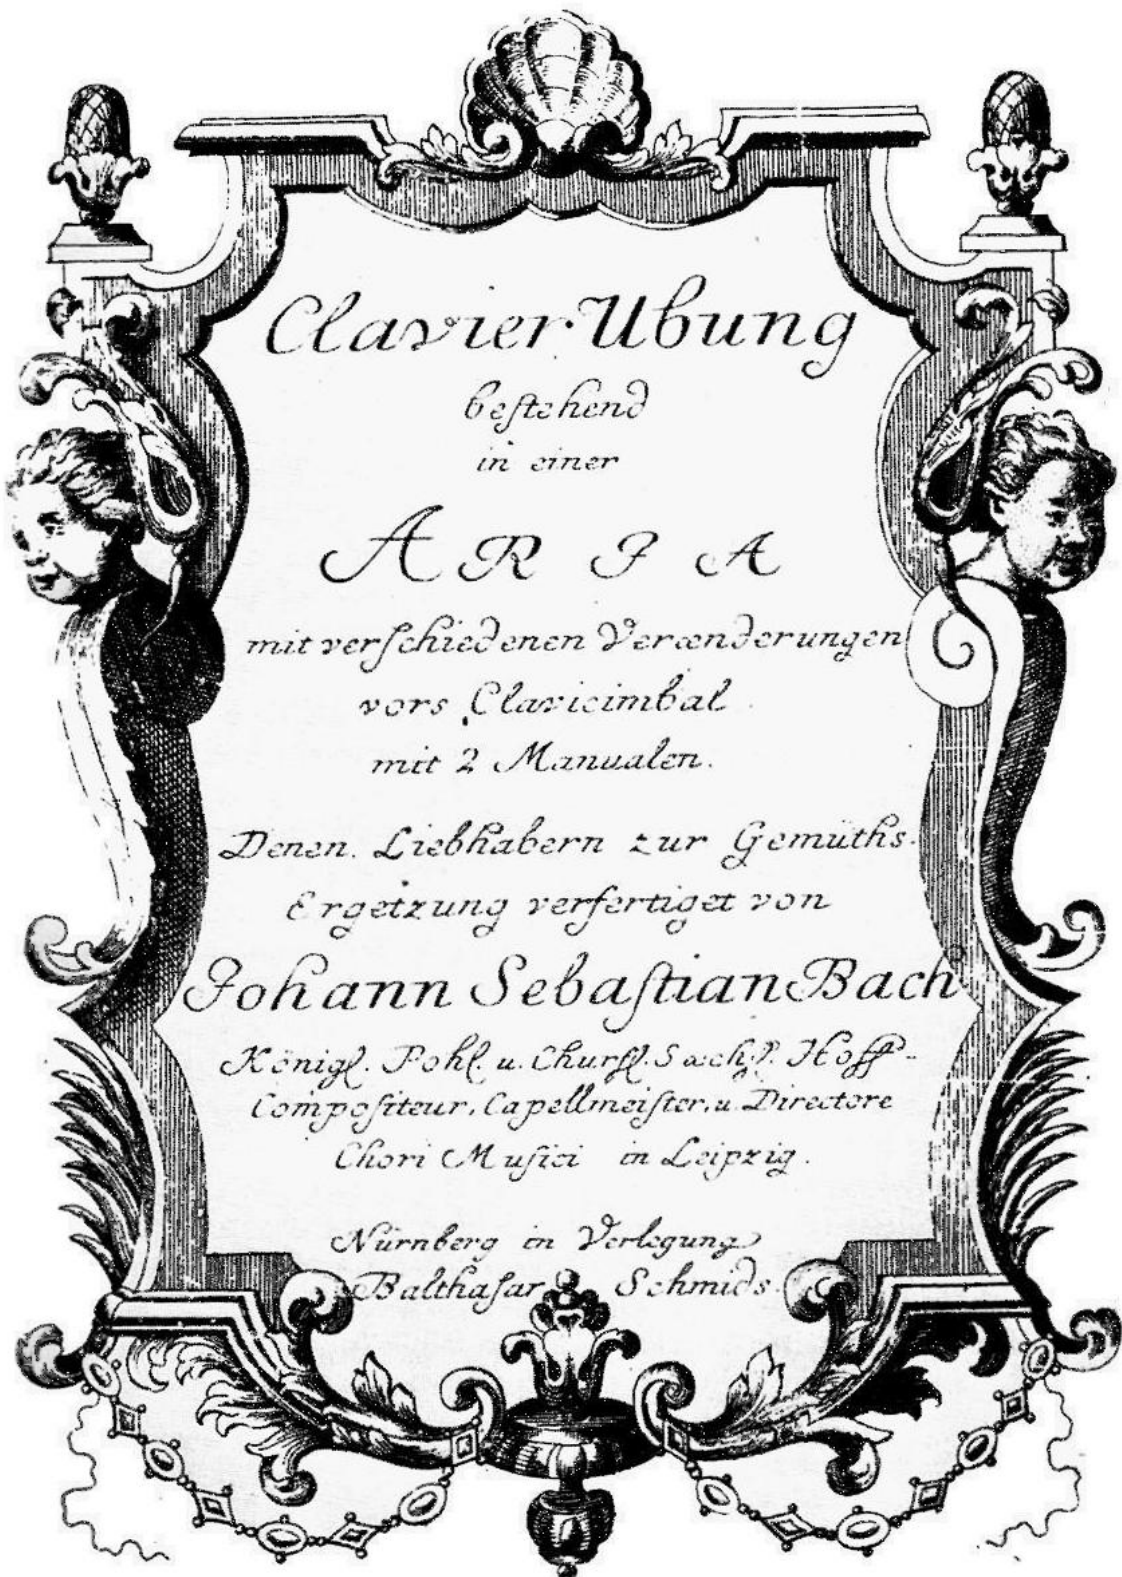 Clavier Ubung
bestehend
in einer
ARIA
mit verschiedenen Verænderungen
vors Clavicimbal
mit 2 Manualen.
Denen Liebhabern zur Gemüths-
Ergetzung verfertiget von
Johann Sebastian Bach
Königl. Pohl. u. Churfl. Sæchs. Hoff-
Compositeur, Capellmeister, u. Directore
Chori Musici in Leipzig.
Nürnberg in Verlegung
Balthasar Schmids.